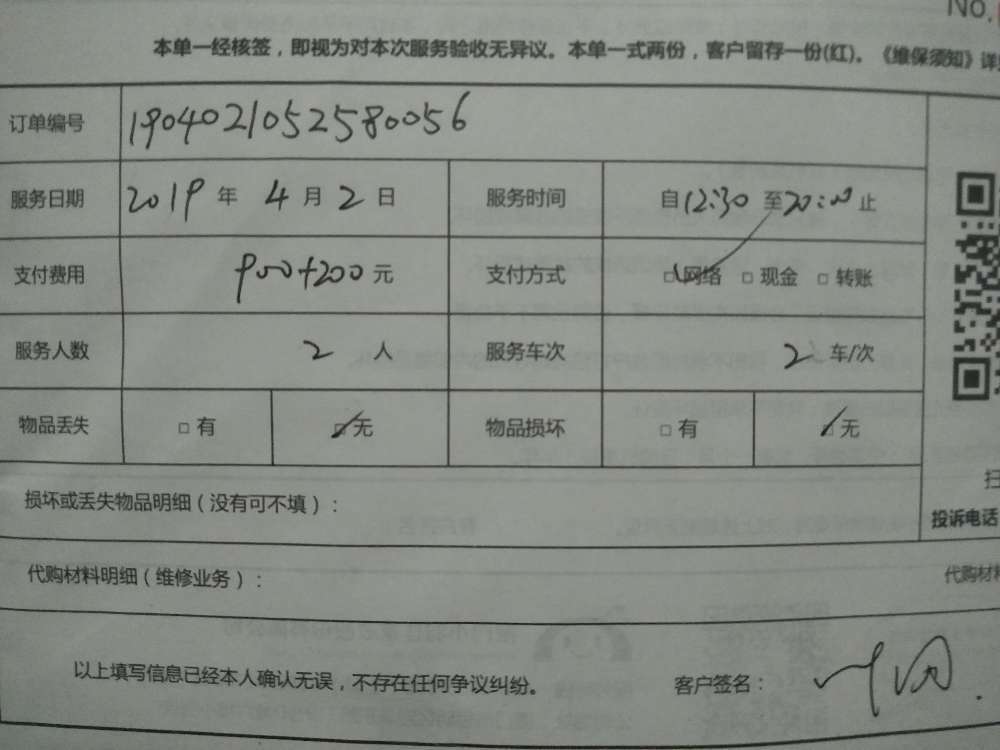 No.
本单一经核签，即视为对本次服务验收无异议。本单一式两份，客户留存一份(红)。《维保须知》详
订单编号 1904021052580056
服务日期 2019 年 4 月 2 日 服务时间 自12:30 至20:00 止
支付费用 900+200 元 支付方式 □网络 □现金 □转账
服务人数 2 人 服务车次 2 车/次
物品丢失 □有 □无 物品损坏 □有 □无
损坏或丢失物品明细（没有可不填）：
扫
投诉电话
代购材料明细（维修业务）：
代购材料
以上填写信息已经本人确认无误，不存在任何争议纠纷。 客户签名：